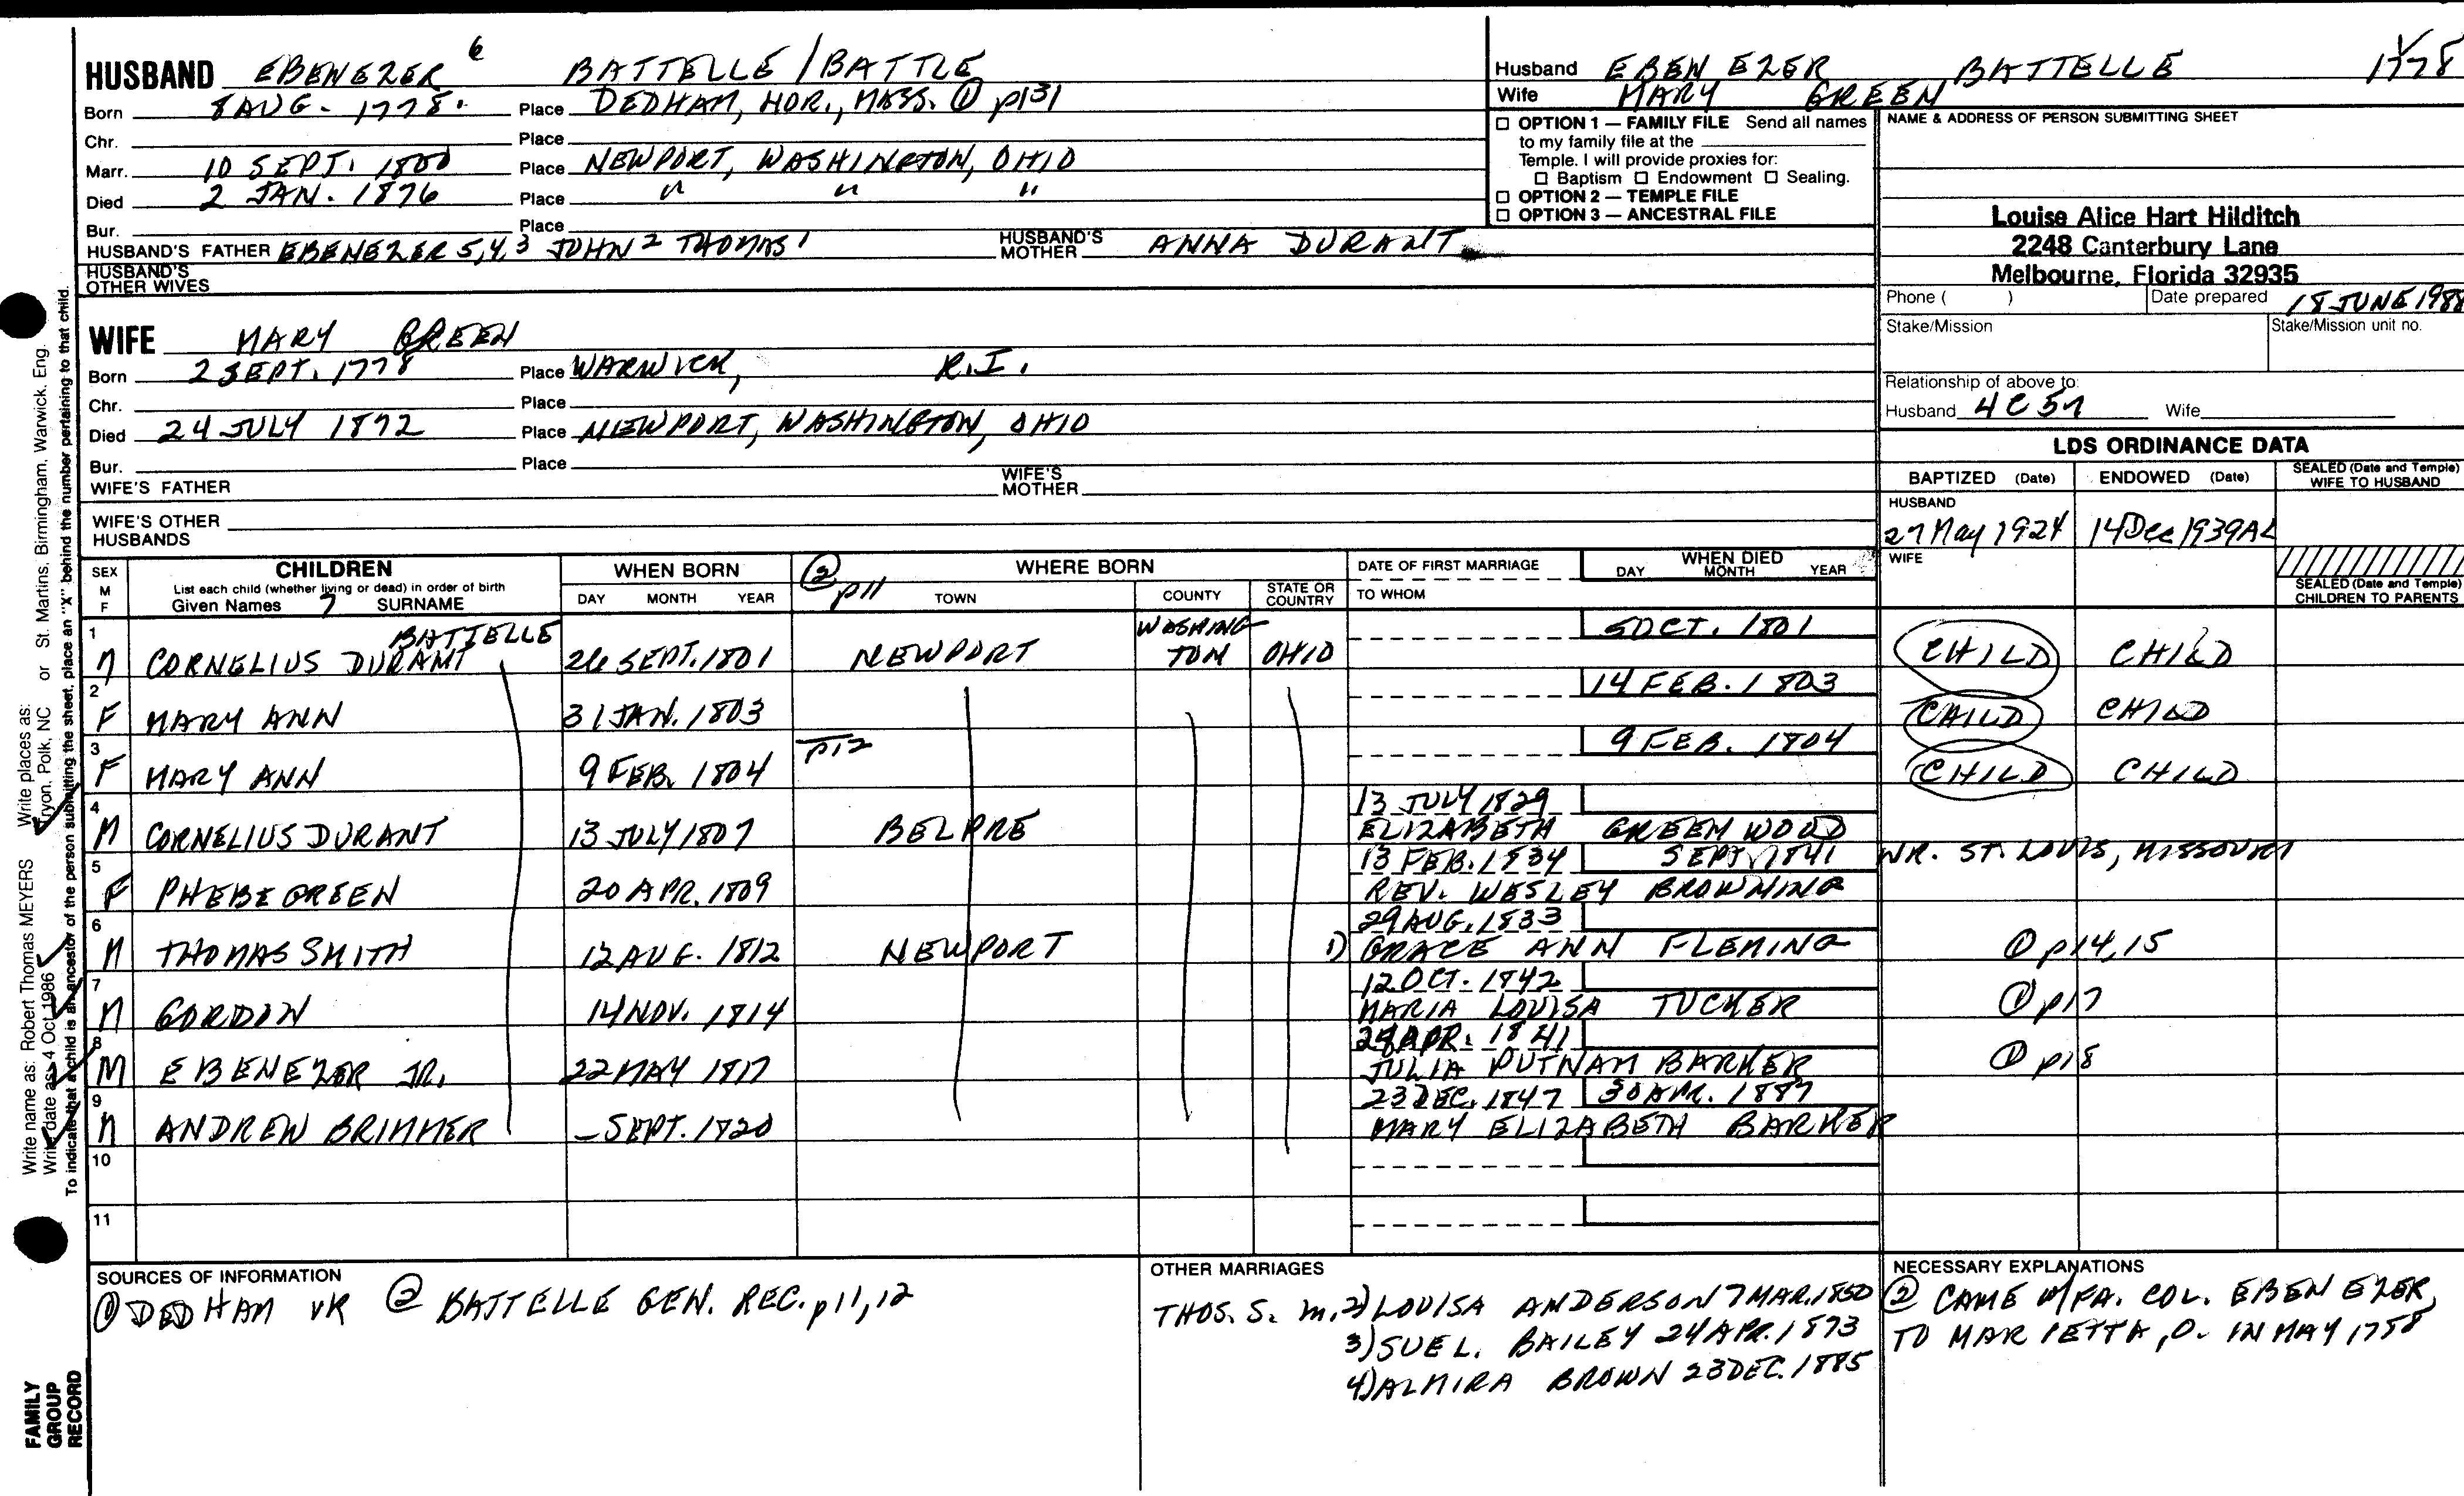 HUSBAND EBENEZER 6 BATTELLE / BATTLE
Born 8 AUG - 1778. Place DEDHAM, NOR., MASS. ① p131
Chr. Place
Marr. 10 SEPT. 1800 Place NEWPORT, WASHINGTON, OHIO
Died 2 JAN. 1876 Place " " "
Bur. Place
HUSBAND'S FATHER EBENEZER 5,4,3 JOHN 2 THOMAS 1 HUSBAND'S MOTHER ANNA DURANT
HUSBAND'S OTHER WIVES
WIFE MARY GREEN
Born 2 SEPT. 1778 Place WARWICK, R.I.
Chr. Place
Died 24 JULY 1872 Place NEWPORT, WASHINGTON, OHIO
Bur. Place
WIFE'S FATHER WIFE'S MOTHER
WIFE'S OTHER HUSBANDS
Husband EBENEZER BATTELLE 1778
Wife MARY GREEN
☐ OPTION 1 — FAMILY FILE Send all names
to my family file at the
Temple. I will provide proxies for:
☐ Baptism ☐ Endowment ☐ Sealing.
☐ OPTION 2 — TEMPLE FILE
☐ OPTION 3 — ANCESTRAL FILE
NAME & ADDRESS OF PERSON SUBMITTING SHEET
Louise Alice Hart Hilditch
2248 Canterbury Lane
Melbourne, Florida 32935
Phone ( ) Date prepared 18 JUNE 1988
Stake/Mission Stake/Mission unit no.
Relationship of above to:
Husband 4C5r Wife
LDS ORDINANCE DATA
BAPTIZED (Date) ENDOWED (Date) SEALED (Date and Temple) WIFE TO HUSBAND
HUSBAND
27 May 1924 14 Dec 1939 AL
WIFE
SEALED (Date and Temple) CHILDREN TO PARENTS
SEX M F CHILDREN WHEN BORN ② p11 WHERE BORN DATE OF FIRST MARRIAGE WHEN DIED
List each child (whether living or dead) in order of birth
Given Names 7 SURNAME DAY MONTH YEAR TOWN COUNTY STATE OR COUNTRY TO WHOM DAY MONTH YEAR
1 BATTELLE WASHING 5 OCT. 1801
M CORNELIUS DURANT 26 SEPT. 1801 NEWPORT TON OHIO CHILD CHILD
2 14 FEB. 1803
F MARY ANN 31 JAN. 1803 CHILD CHILD
3 p12 9 FEB. 1804
F MARY ANN 9 FEB. 1804 CHILD CHILD
4 13 JULY 1829
M CORNELIUS DURANT 13 JULY 1807 BELPRE ELIZABETH GREENWOOD
5 13 FEB. 1834 SEPT 1841 NR. ST. LOUIS, MISSOURI
F PHEBE GREEN 20 APR. 1809 REV. WESLEY BROWNING
6 29 AUG. 1833
M THOMAS SMITH 12 AUG. 1812 NEWPORT 1) GRACE ANN FLEMING ① p14, 15
7 12 OCT. 1842
M GORDON 14 NOV. 1814 MARIA LOUISA TUCKER ① p17
8 APR. 1841
M EBENEZER JR. 22 MAY 1817 JULIA PUTNAM BARKER ① p18
9 23 DEC. 1847 30 APR. 1887
M ANDREW BRIMMER — SEPT. 1820 MARY ELIZABETH BARKER
10
11
SOURCES OF INFORMATION
① DEDHAM VR ② BATTELLE GEN. REC. p11, 12
OTHER MARRIAGES
THOS. S. m. 2) LOUISA ANDERSON 7 MAR. 1850
3) SUE L. BAILEY 24 APR. 1873
4) ALMIRA BROWN 23 DEC. 1885
NECESSARY EXPLANATIONS
② CAME W/FA. COL. EBENEZER,
TO MARIETTA, O. IN MAY 1788
Write name as: Robert Thomas MEYERS Write places as: Tryon, Polk, NC or St. Martins, Birmingham, Warwick, Eng.
Write date as: 4 Oct 1986
To indicate that a child is an ancestor of the person submitting the sheet, place an "X" behind the number pertaining to that child.
FAMILY
GROUP
RECORD